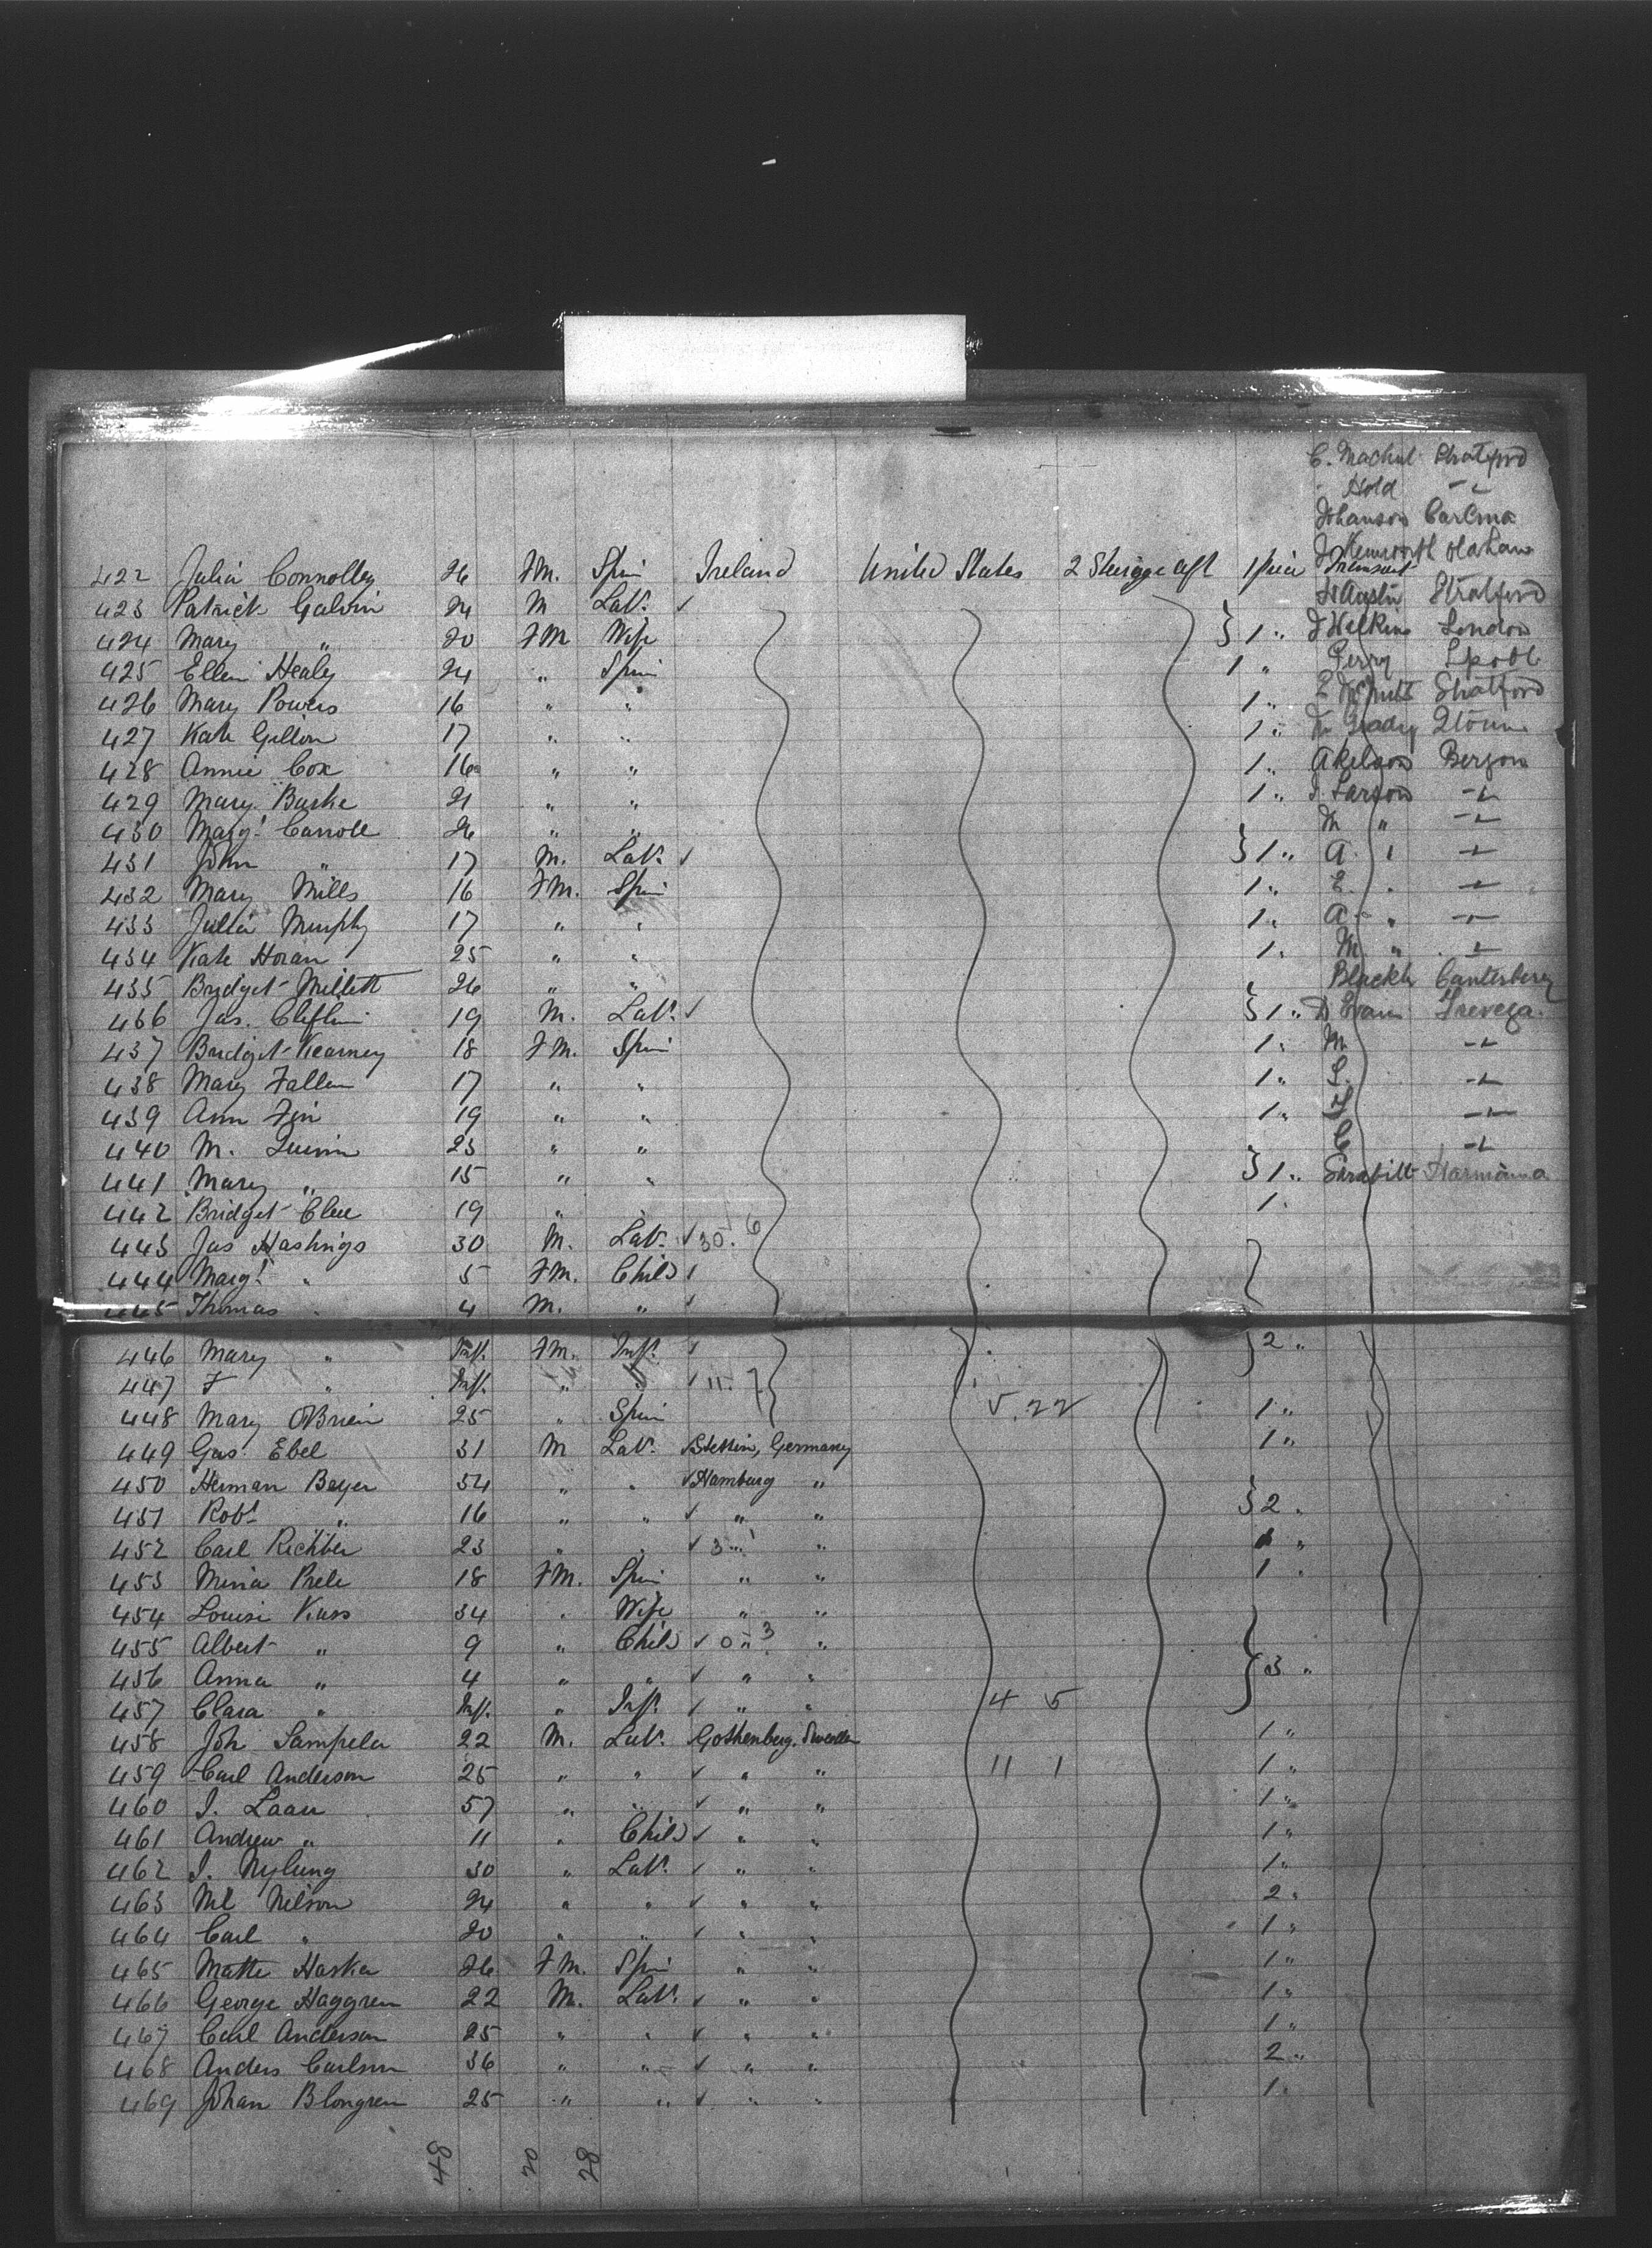 C. Machul Stratford
Hold "
Johanson Carlma
J Kenworth
422 Julia Connolley 26 FM. Spin Ireland United States 2 Steerage aft 1 piece Transint
423 Patrick Galvin 24 M Lab. ✓ H Austin Stratford
424 Mary " 20 FM Wife } 1 " J Wilkins London
425 Ellen Healy 24 " Spin 1 " Perry Lpool
426 Mary Powers 16 " " 1 " Stratford
427 Kate Gillon 17 " " 1 " M Grady
428 Annie Cox 16 " " 1 " Akelson Bergon
429 Mary Burke 21 " " 1 " J. Larson "
430 Margt. Carroll 26 " " M " "
431 John " 17 M. Lab. ✓ } 1 " A. " "
432 Mary Mills 16 FM. Spin 1 " E. " "
433 Julia Murphy 17 " " 1 " A " "
434 Kate Horan 25 " " 1 " M " "
435 Bridget Millett 26 " " Canterbery
436 Jas. Cliflin 19 M. Lab. ✓ } 1 " D Evans
437 Bridget Kearney 18 FM. Spin 1 " M "
438 Mary Fallen 17 " " 1 " S. "
439 Ann Fin 19 " " 1 " "
440 M. Quinn 23 " " C "
441 Mary " 15 " " } 1 "
442 Bridget Clue 19 " " 1 "
443 Jas Hastings 30 M. Lab. ✓ 30. 6
444 Margt. " 5 FM. Child ✓
445 Thomas " 4 M. " ✓
446 Mary " Inft. FM. Inft. ✓ } 2 "
447 F " Inft. " " ✓ 11. 7
448 Mary OBrien 25 " Spin 5. 22 1 "
449 Gus. Ebel 31 M Lab. ✓ Stettin, Germany 1 "
450 Herman Beyer 54 " " ✓ Hamburg "
451 Robt. " 16 " " ✓ " " } 2 "
452 Carl Richter 23 " " ✓ 3 " 1 " "
453 Minia Prele 18 FM. Spin " " 1 "
454 Louise Kuss 34 " Wife " "
455 Albert " 9 " Child ✓ 0 " 3 "
456 Anna " 4 " " ✓ " " } 3 "
457 Clara " Inft. " Inft. ✓ " " 4 5
458 Joh Sampela 22 M. Lab. ✓ Gothenburg, Sweden 1 "
459 Carl Anderson 25 " " ✓ " " 11 1 1 "
460 I. Laau 57 " " ✓ " " 1 "
461 Andrew " 11 " Child ✓ " " 1 "
462 I. Nylung 30 " Lab. ✓ " " 1 "
463 Ml Nilson 24 " " ✓ " " 2 "
464 Carl " 20 " " ✓ " " 1 "
465 Matte Haska 26 FM. Spin " " 1 "
466 George Haggren 22 M. Lab. ✓ " " 1 "
467 Carl Anderson 25 " " ✓ " " 1 "
468 Anders Carlson 36 " " ✓ " " 2 "
469 Johan Blongren 25 " " ✓ " " 1 "
48 20 28